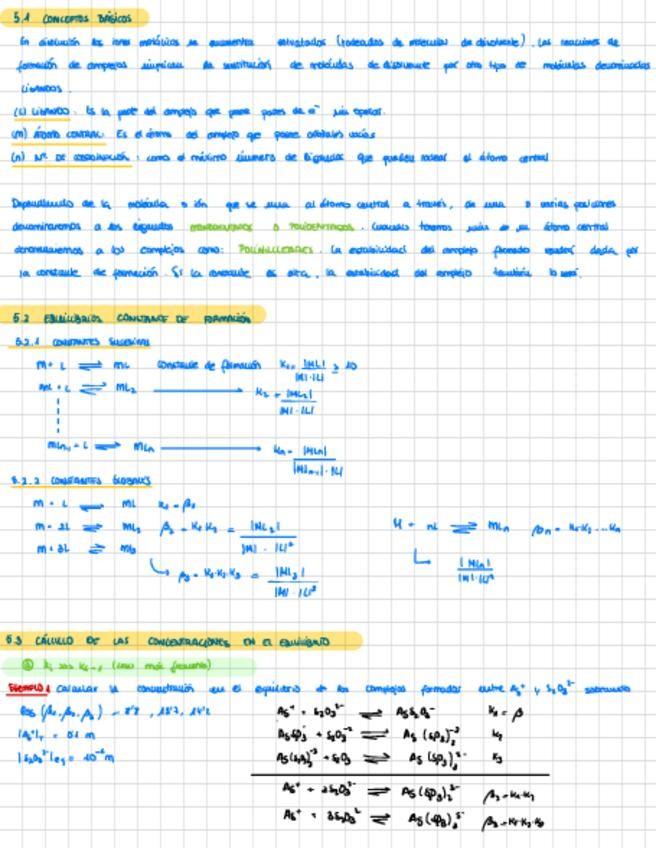 5.1 CONCEPTOS BÁSICOS
En disolución los iones metálicos se encuentran solvatados (rodeados de moléculas de disolvente). Las reacciones de
formación de complejos implican la sustitución de moléculas de disolvente por otro tipo de moléculas denominadas
LIGANDOS.
(L) LIGANDO: Es la parte del complejo que posee pares de e⁻ sin
(M) ÁTOMO CENTRAL: Es el átomo del complejo que posee orbitales vacíos
(n) Nº DE COORDINACIÓN: como el máximo número de ligandos que pueden rodear al átomo central
Dependiendo de la molécula o ión que se una al átomo central a través, de una o varias posiciones
denominaremos a los ligandos MONODENTADOS O POLIDENTADOS. Cuando tenemos más de un átomo central
denominaremos a los complejos como: POLINUCLEARES. La estabilidad del complejo formado vendrá dada por
la constante de formación. Si la constante es alta, la estabilidad del complejo también lo será.
5.2 EQUILIBRIOS CONSTANTE DE FORMACIÓN
5.2.1 CONSTANTES SUCESIVAS
M + L ⇌ ML constante de formación K₁ = |ML| / |M|·|L| ≥ 10
ML + L ⇌ ML₂ → K₂ = |ML₂| / |M|·|L|
MLn-1 + L ⇌ MLn → Kn = |MLn| / |MLn-1|·|L|
5.2.2 CONSTANTES GLOBALES
M + L ⇌ ML K₁ = β₁
M + 2L ⇌ ML₂ β₂ = K₁·K₂ = |ML₂| / |M|·|L|²
M + 3L ⇌ ML₃
β₃ = K₁·K₂·K₃ = |ML₃| / |M|·|L|³
M + nL ⇌ MLn βn = K₁·K₂...Kn
|MLn| / |M|·|L|ⁿ
5.3 CÁLCULO DE LAS CONCENTRACIONES EN EL EQUILIBRIO
(caso más frecuente)
EJEMPLO 1 Calcular la concentración en el equilibrio de los complejos formados entre Ag⁺ y S₂O₃²⁻ sabiendo
log (β₁, β₂, β₃) = 8'8, 13'7, 14'2
|Ag⁺|T = 0'1 M
|S₂O₃²⁻|eq =
Ag⁺ + S₂O₃²⁻ ⇌ AgS₂O₃⁻ K₁ = β
K₂
K₃
Ag⁺ + 2S₂O₃²⁻ ⇌ β₂ = K₁·K₂
Ag⁺ + 3S₂O₃²⁻ ⇌ β₃ = K₁·K₂·K₃